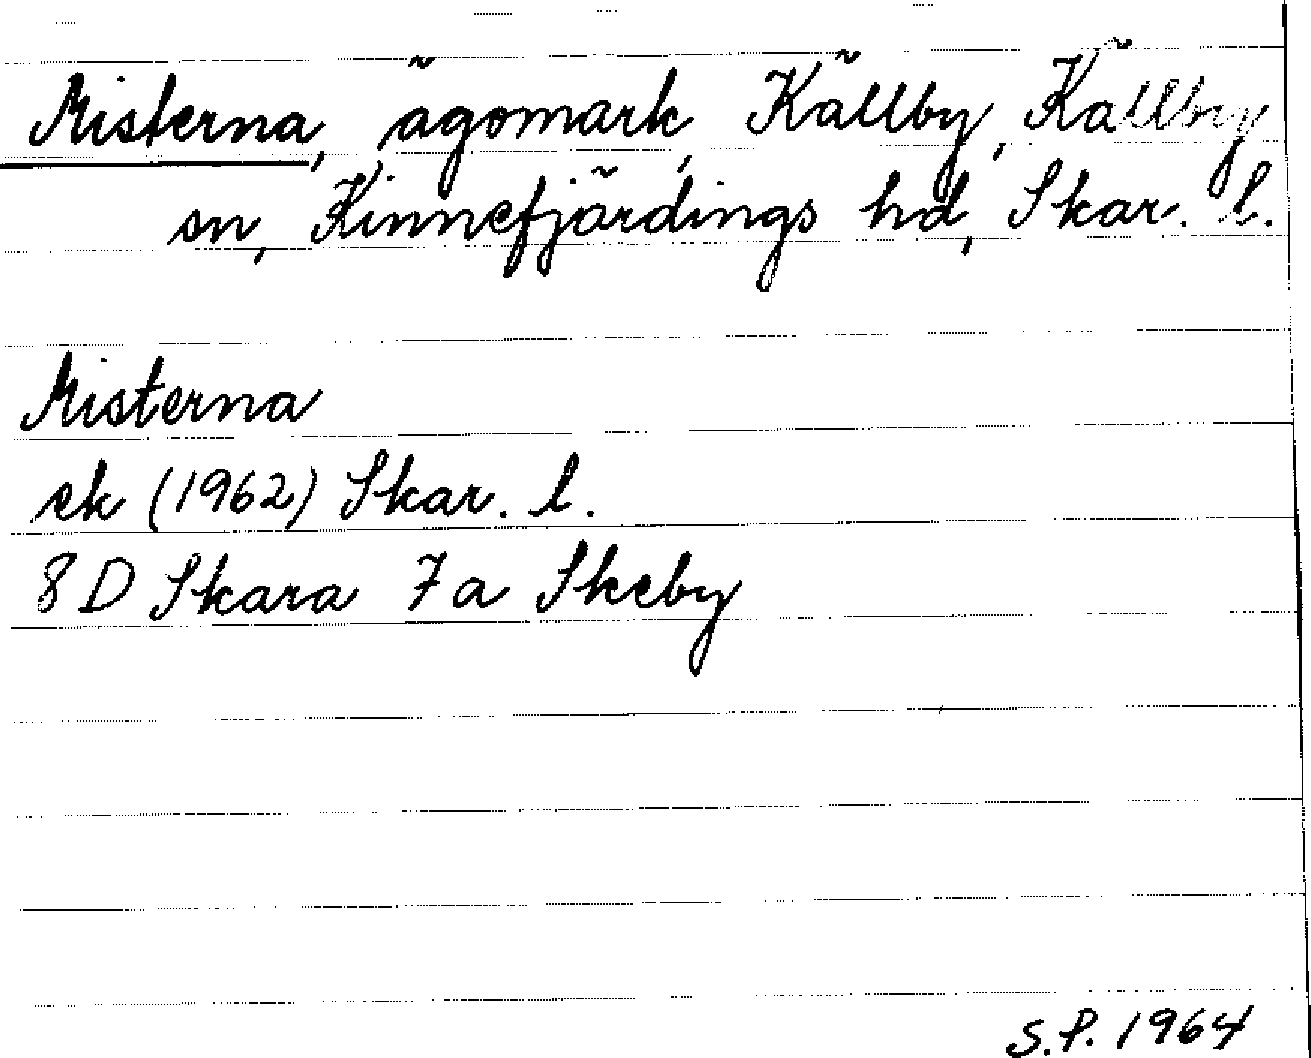 Misterna, ägomark, Källby, Källby
sn, Kinnefjärdings hd, Skar. l.
Misterna
ek (1962) Skar. l.
8 D Skara 7a Skeby
S.P. 1964